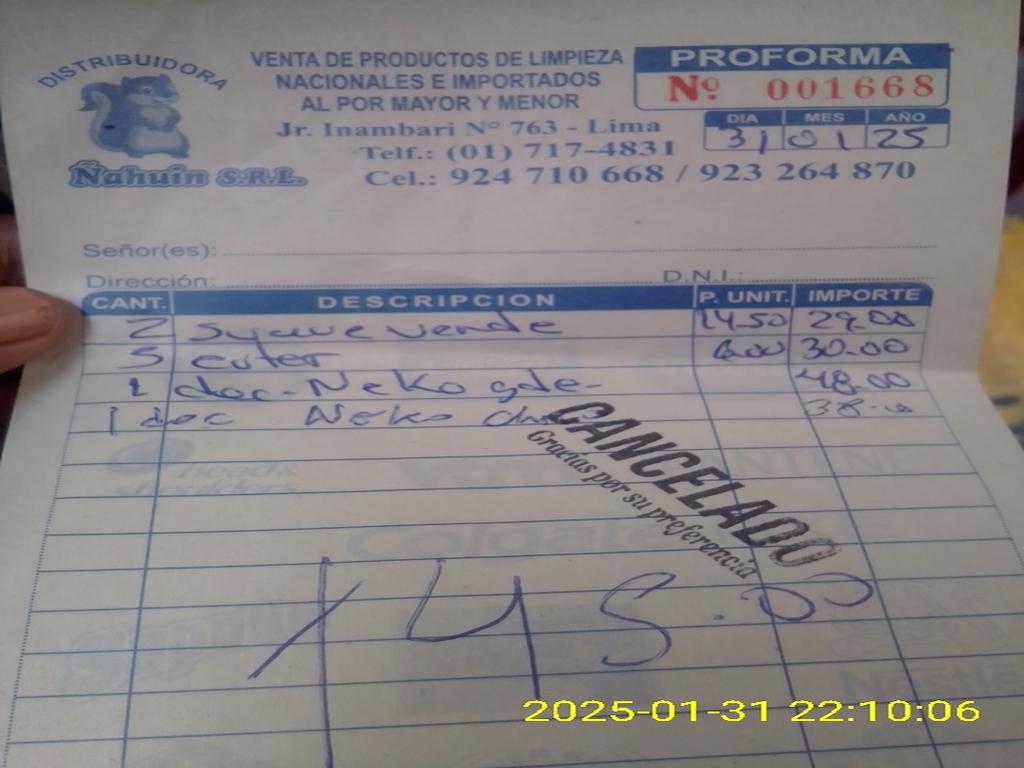 DISTRIBUIDORA
Ñahuin S.R.L.
VENTA DE PRODUCTOS DE LIMPIEZA
NACIONALES E IMPORTADOS
AL POR MAYOR Y MENOR
Jr. Inambari N° 763 - Lima
Telf.: (01) 717-4831
Cel.: 924 710 668 / 923 264 870
PROFORMA
Nº 001668
DIA MES AÑO
31 01 25
Señor(es):
Dirección: D.N.I.:
CANT. DESCRIPCION P. UNIT. IMPORTE
2 verde 14.50 29.00
5 6.00 30.00
1 doc. Neko gde. 48.00
1 doc Neko 38.00
CANCELADO
Gracias por su preferencia
head &
shoulders
Colgate
Nestlé
145.00
2025-01-31 22:10:06